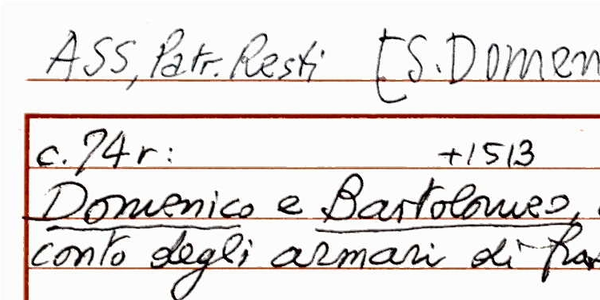 ASS, Patr. Resti [S. Domen
c. 74r: +1513
Domenico e Bartolomeo,
conto degli armari di fra